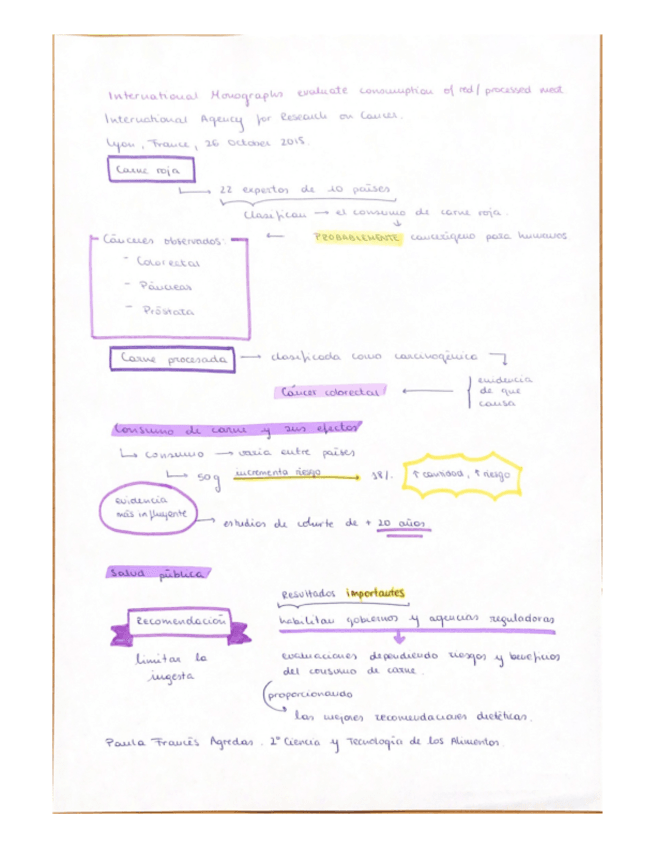 International Monographs evaluate consumption of red/processed meat
International Agency for Research on Cancer.
Lyon, France, 26 October 2015.
Carne roja
22 expertos de 10 países
Clasifican → el consumo de carne roja.
↓
Cánceres observados: ← PROBABLEMENTE cancerígeno para humanos
- Colorectal
- Páncreas
- Próstata
Carne procesada → clasificada como carcinogénica
evidencia
de que
causa
Cáncer colorectal ←
Consumo de carne y sus efectos
↳ consumo → varia entre países
↳ 50g incrementa riesgo → 18%. ↑ cantidad, ↑ riesgo
evidencia
más influyente
→ estudios de cohorte de + 20 años
Salud pública
Resultados importantes
Recomendación
habilitan gobiernos y agencias reguladoras
limitar la
ingesta
evaluaciones dependiendo riesgos y beneficios
del consumo de carne.
proporcionando
las mejores recomendaciones dietéticas.
Paula Francés Agredas. 2º Ciencia y Tecnología de los Alimentos